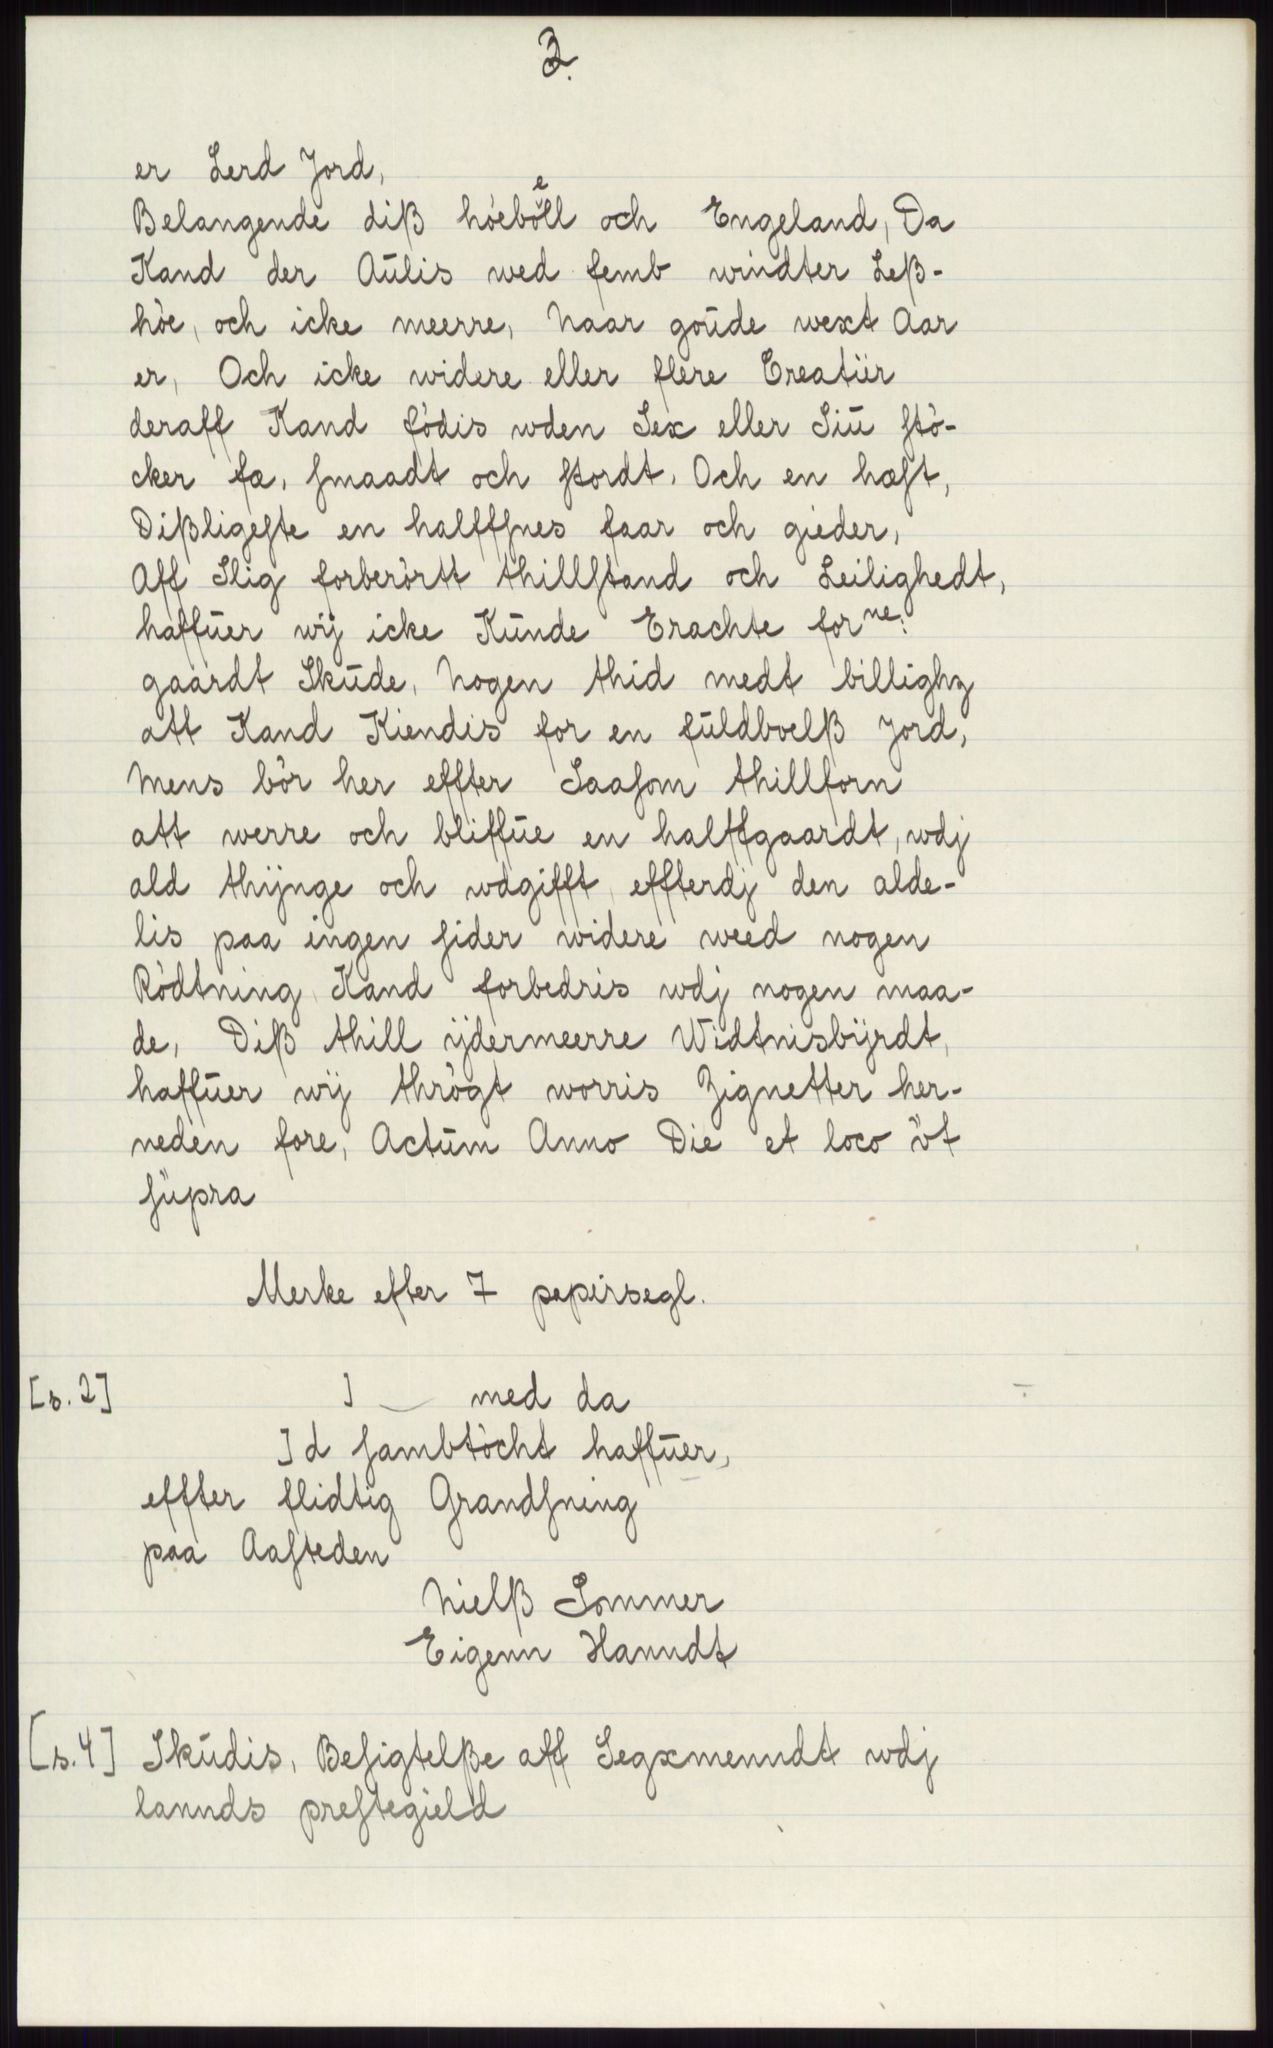 3.
er Lerd Jord,
Belangende diß höeböell och Engeland, Da
Kand der Aŭlis wed femb windter Leß-
höe, och icke meerre, Naar goŭde wext Aar
er, Och icke widere eller flere Creatŭr
deraff Kand födis wden Sex eller Siŭ stö-
cker fæ, smaadt och stordt. Och en hæst,
Dißligeste en halffsnes faar och gieder,
Aff Slig forberörtt thillstand och Leilighedt,
haffŭer wij icke Kŭnde Erachte for ne:
gaardt Skŭde, Nogen thid medt billighz
att Kand Kiendis for en fŭldboelß Jord,
Mens bör her effter Saasom thillforn
att werre och bliffŭe en halffgaardt, wdj
ald thijnge och wdgifft, effterdj den alde-
lis paa ingen sider widere weed nogen
Rödtning Kand forbedris wdj nogen maa-
de, Diß thill ijdermeerre Widtnisbijrdt,
haffŭer wij thrögt worris Zignetter her-
neden fore, Actŭm Anno Die et loco ŭt
sŭpra
Merke efter 7 papirsegl.
[s. 2] ] med da
]d sambtöcht haffŭer,
effter flidtig Grandsning
paa Aasteden
Nielß Sommer
Eigenn Hanndt
[s. 4] Skŭdis, Besigtelße aff Segxmenndt wdj
lannds prestegield